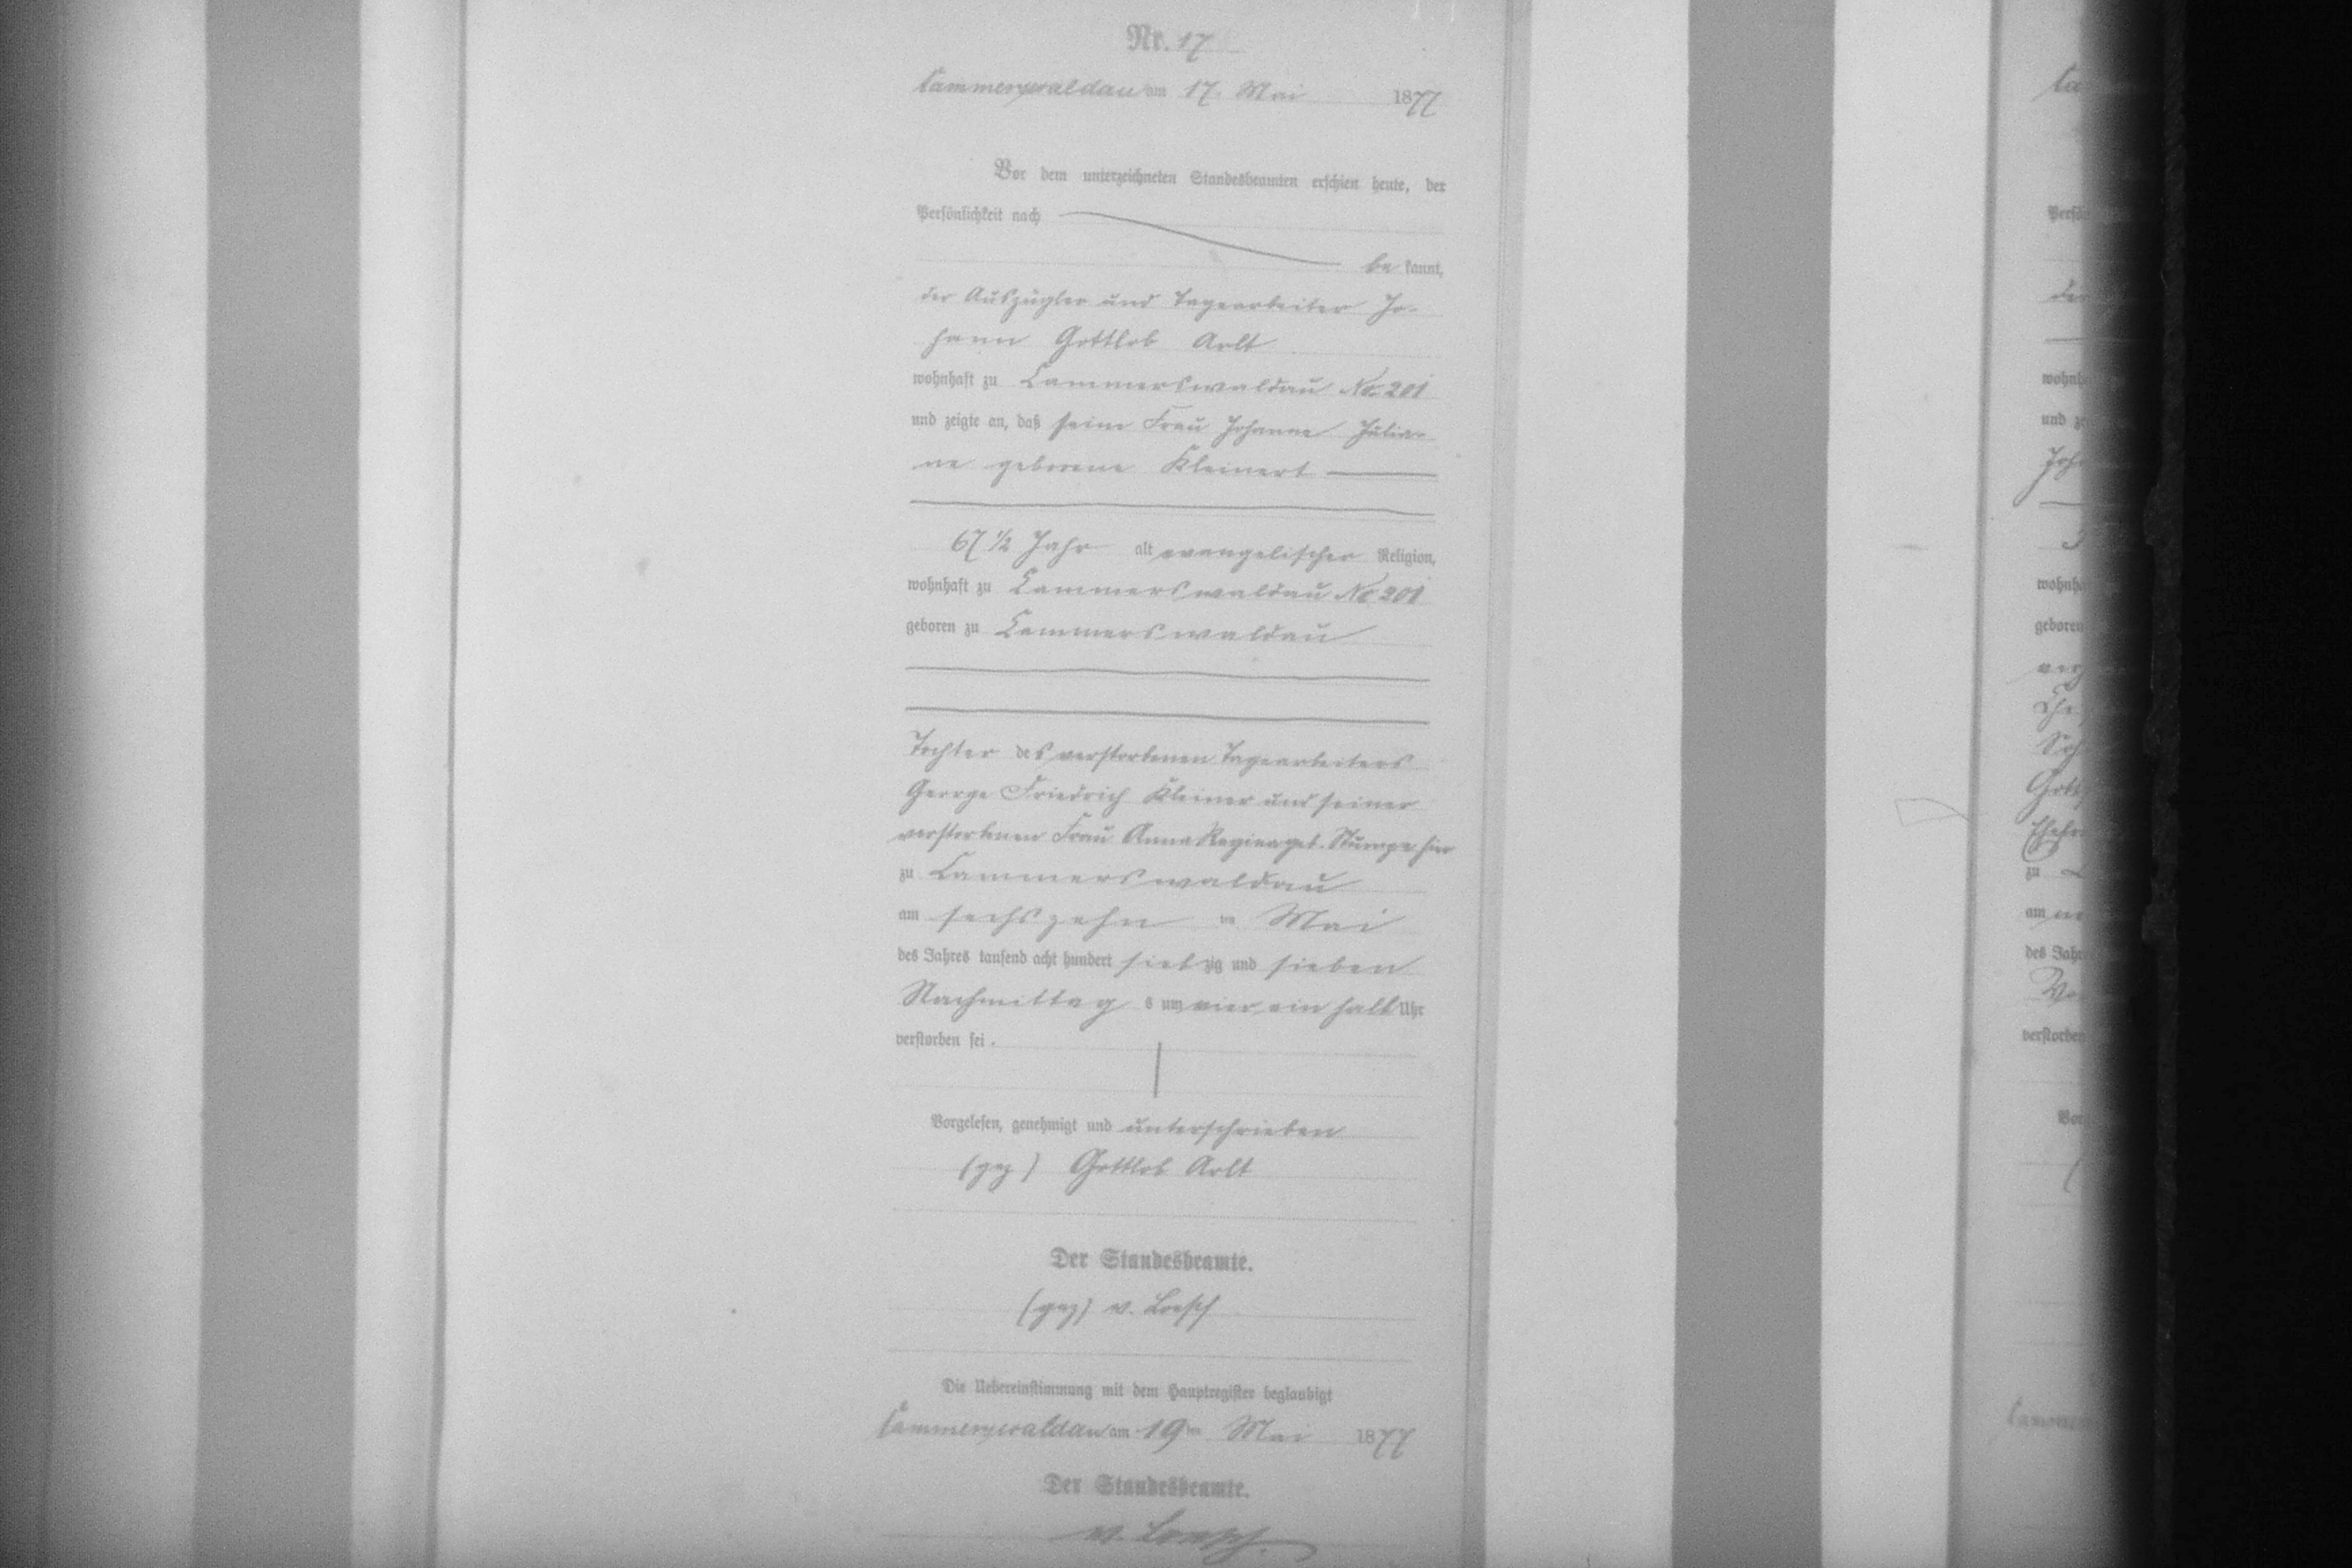 Nr. 17
Cammerswaldau am 17. Mai 1877
Vor dem unterzeichneten Standesbeamten erschien heute, der
Persönlichkeit nach
be kannt,
der Auszügler und Tagearbeiter Jo-
hann Gottlob Arlt
wohnhaft zu Cammerswaldau No. 201
und zeigte an, daß seine Frau Johanne Julia-
ne geborene Kleinert
67 1/2 Jahr alt evangelischer Religion,
wohnhaft zu Cammerswaldau No 201
geboren zu Cammerswaldau
Tochter des verstorbenen Tagearbeiters
George Friedrich Kleiner und seiner
verstorbenen Frau Anna Regina geb. Stumpe hier
zu Cammerswaldau
am sechszehn ten Mai
des Jahres tausend acht hundert siebzig und sieben
Nachmittag s um vier ein halb Uhr
verstorben sei.
Vorgelesen, genehmigt und unterschrieben
(gez) Gottlob Arlt
Der Standesbeamte.
(gez) v. Loesch
Die Uebereinstimmung mit dem Hauptregister beglaubigt
Cammerswaldau am 19ten Mai 1877
Der Standesbeamte.
v. Loesch.